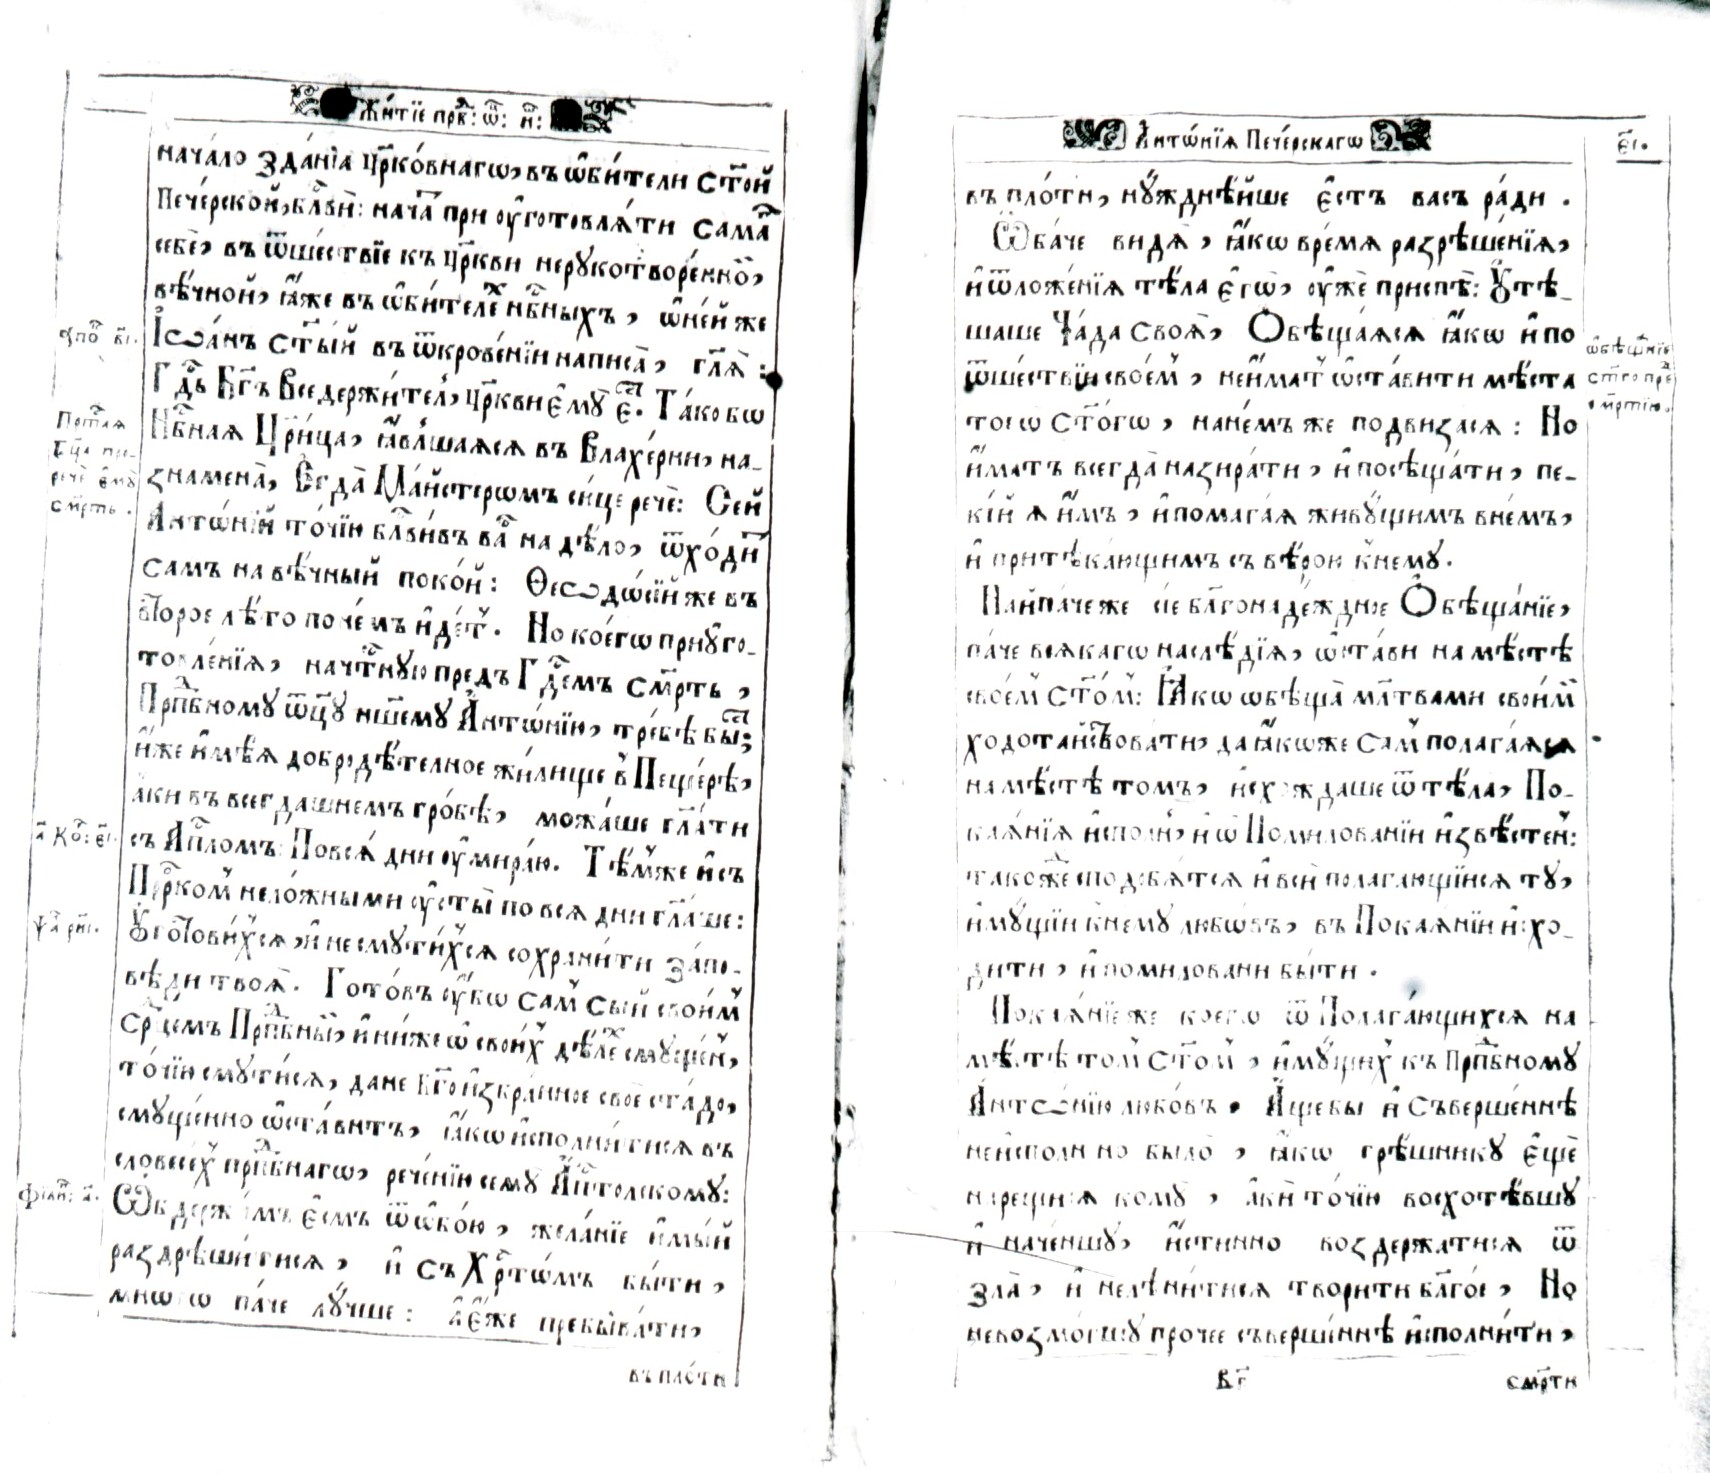 Житїе прпⷣ: ѿ: н҃:
нача́ло зда́нїѧ цр҃ко́внагѡ, въ ѡ҆би́тели ст҃о́й
Пече́рской, бл҃ве́н: нача́ при ѹ҆готовлѧ́ти сама́
себѐ, въ ѿше́ствїе къ цр҃кви нерукотворе́нной,
вѣ́чной, ꙗ҆́же въ ѡ҆би́телех нб҃ныхъ, ѡ҆ не́й же
І҆ѡа́нъ ст҃ы́й въ ѿкрове́нїи написа̀, гл҃ѧ:
Гдⷭ҇ь Бг҃ъ Вседержи́тель, цр҃кви є҆мꙋ̀ є҆сть. Та́ко бѡ
Нб҃наѧ Цр҃и́ца, ꙗ҆́вльшаѧсѧ въ Влахе́рни, на-
знамена̀, Е҆гда̀ Ма́йстерѡмъ си́це речѐ: Се́й
Антѡ́нїй то́чїю блⷭ҇ви́въ ва́съ на дѣ́ло, ѿхо́дит
самъ на вѣ́чный поко́й: Ѳеѡдѡ́сїй же въ
второе лѣ́то по не́мъ и҆де́тъ. Но кое́гѡ приꙋго-
товле́нїѧ, на чⷭ҇тнꙋю предъ Гдⷭ҇емъ см҃рть,
Прпⷣбномꙋ ѿц҃ꙋ нш҃емꙋ А҆нтѡ́нїю, тре́бѣ бы́сть;
и҆́же и҆мѣ́ѧ добродѣ́телное жи́лище в Пеще́рѣ,
а҆́ки въ всегдашнемъ гро́бѣ, можа́ше гл҃ати
съ А҆пⷭ҇ломъ: По всѧ́ дни ѹ҆мира́ю. Тѣ́мже и҆ съ
Прⷪ҇ркомъ нело́жными ѹ҆сты̀ по всѧ дни гл҃аше:
Ѹ҆гото́вихсѧ, и҆ не смꙋти́хсѧ сохрани́ти за́по-
вѣди твоѧ̀. Гото́въ ѹ҆́бѡ самъ сы́й свои́мъ
Ср҃дцемъ Прпⷣбный, и҆ ни́же ѡ҆ свои́х дѣ́лех смꙋще́н,
то́чїю смꙋти́сѧ, да не Бг҃ои҆збра́нное своѐ ста́до,
смꙋще́нно ѡ҆ста́витъ, ꙗ҆́кѡ и҆сполни́тисѧ въ
словесе́х прпⷣбнагѡ, рече́нїю семꙋ̀ А҆пⷭ҇толскомꙋ:
Ѡ҆бдержи́мь є҆́смь ѿ ѡ҆бою̀, жела́нїе и҆мы́й
раздрѣши́тисѧ, и҆ съ Хрⷭ҇тѡ́мъ бы́ти,
мно́гѡ па́че лꙋ́чше: а҆ є҆́же пребыва́ти,
въ пло́ти
апоⷦ҇ к҃і.
Прⷭ҇таѧ
Бц҃а пре-
речѐ є҆мꙋ̀
см҃рть.
а҃ Ко́р: є҃і.
ѱа҃ рн҃і.
Філи́п: а҃.
А҆нтѡ́нїѧ Пече́рскагѡ
є҃і.
въ пло́ти, нꙋ́ждне́йше є҆́стъ васъ ра́ди.
Ѻ҆ба́че видѧ̀, ꙗ҆́кѡ вре́мѧ разрѣше́нїѧ,
и҆ ѿложе́нїѧ тѣ́ла є҆гѡ̀, ѹ҆жѐ приспѣ̀: Ѹ҆тѣ-
шаше Ча́да своѧ̀, Ѻ҆бѣща́ѧсѧ ꙗ҆́кѡ и҆ по
ѿше́ствїи свое́мъ, не и҆́мать ѡ҆ста́вити мѣ́ста
тогѡ ст҃о́гѡ, на не́мъ же подвиза́сѧ: Но
и҆́мать всегда̀ назира́ти, и҆ посѣща́ти, пе-
кі́йсѧ и҆́мъ, и҆ помага́ѧ живꙋ́щимъ в не́мъ,
и҆ притѣка́ющимъ съ вѣ́рою к немꙋ.
Наипа́че же сїе бл҃гонаде́ждное Ѻ҆бѣща́нїе,
па́че всѧкагѡ наслѣ́дїѧ, ѡ҆ста́ви на мѣ́стѣ
свое́м ст҃о́м: Ꙗ҆́кѡ ѡбѣща̀ мл҃твами свои́ми
ходота́йствовати, да ꙗ҆́коже самъ полага́ѧсѧ
на мѣ́стѣ томъ, и҆схождаше ѿ тѣ́ла, По-
каѧ́нїѧ и҆споли́, и҆ ѡ҆ Помиловании и҆звѣ́стен:
такожде сподобѧтсѧ и҆ вси полагающїисѧ тꙋ,
и҆мꙋ́щїи к немꙋ любо́въ, въ Покаѧ́нїи и҆схо-
дити, и҆ помиловани быти.
Покаѧ́нїе же коегѡ ѿ Полага́ющихсѧ на
мѣ́стѣ том ст҃ом, и҆мꙋ́щих къ Прпⷣбномꙋ
А҆нтѡ́нїю любо́въ. А҆́щебы и҆ съверше́ннѣ
не и҆сполнно было̀, ꙗ҆́кѡ грѣ́шникꙋ є҆щѐ
нарещисѧ комꙋ̀, а҆́ки то́чїю восхотѣ́вшꙋ
и҆ наче́ншꙋ, и҆́стинно воздержатисѧ ѿ
зла̀, и҆ нелѣни́тисѧ твори́ти бл҃го́е, Но
невозмо́гшꙋ прочее съверше́ннѣ и҆сполни́ти,
ѡ҆бѣща́нїе
ст҃гѡ пре
см҃ртїю.
В г҃
см҃рти